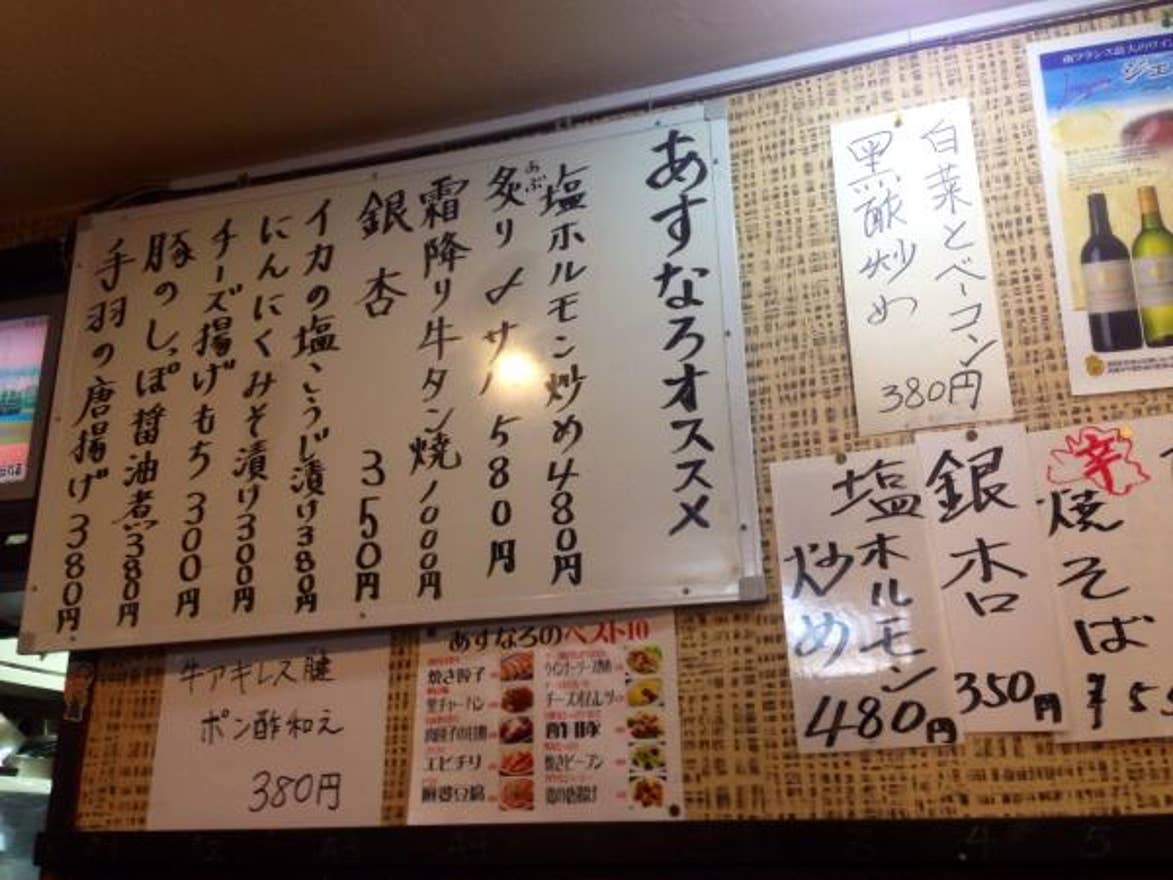 あすなろオススメ
塩ホルモン炒め480円
炙り〆サバ580円
あぶ
霜降り牛タン焼1000円
銀杏 350円
イカの塩こうじ漬け380円
にんにくみそ漬け300円
チーズ揚げもち300円
豚のしっぽ醤油煮380円
手羽の唐揚げ380円
白菜とベーコン
黒酢炒め
380円
塩ホルモン
炒め
480円
銀杏
350円
辛
焼そば
¥55
牛アキレス腱
ポン酢和え
380円
あすなろのベスト10
焼き餃子
エビチリ
麻婆豆腐
チーズオムレツ
酢豚
焼きビーフン